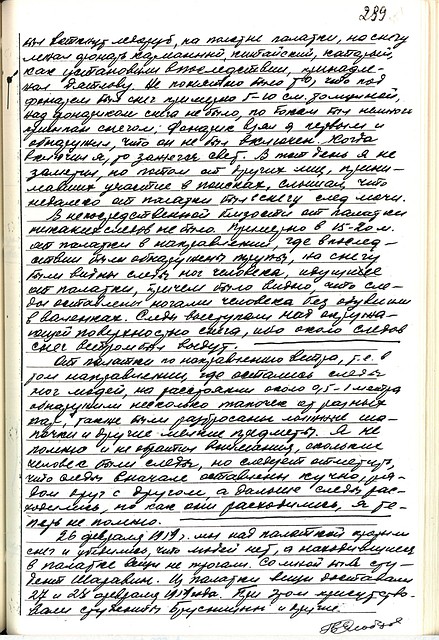 289
был воткнут ледоруб, на пологе палатки, на снегу
лежал фонарь карманный, китайский, который,
как установили впоследствии, принадле-
жал Дятлову. Не понятно было то, что под
фонарем был снег примерно 5-10 см. толщиной,
над фонариком снега не было, по бокам был немного
припан снегом. Фонарик взял я первым и
обнаружил, что он не был включен. Когда
включил я, то зажегся свет. В тот день я не
заметил, но потом от других лиц, прини-
мавших участие в поисках, слышал, что
недалеко от палатки был в снегу след мочи.
В непосредственной близости от палатки
никаких следов не было. Примерно в 15-20 м.
от палатки в направлении, где впослед-
ствии были обнаружены трупы, на снегу
были видны следы ног человека, идущие
от палатки, причем было видно, что сле-
ды оставлены ногами человека без обуви или
в валенках. Следы выступали над окружа-
ющей поверхностью снега, ибо около следов
снег ветром был выдут.
От палатки по направлению ветра, т.е. в
том направлении, где остались следы
ног людей, на расстоянии около 0,5-1 метра
обнаружили несколько тапочек от разных
пар, также были разбросаны лыжные ша-
почки и другие мелкие предметы. Я не
помню и не обратил внимания, скольких
человек были следы, но следует отметить,
что следы вначале оставлены кучно, ря-
дом друг с другом, а дальше следы рас-
ходились, но как они расходились, я те-
перь не помню.
26 февраля 1959 г. мы над палаткой
снег и убедились, что людей нет, а находившиеся
в палатке вещи не трогали. Со мной был сту-
дент Шаравин. Из палатки вещи доставали
27 и 28 февраля 1959 года. При этом присутство-
вали студенты Брусницын и другие.